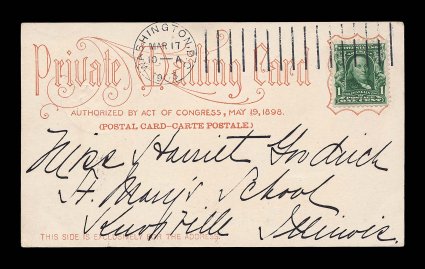 WASHINGTON, D.
MAR 17
10-A
190
Private Mailing Card
1
AUTHORIZED BY ACT OF CONGRESS, MAY 19, 1898.
(POSTAL CARD–CARTE POSTALE)
Miss Harriet Goodrich
St. Mary's School
Knoxville Illinois.
THIS SIDE IS EXCLUSIVELY FOR THE ADDRESS.